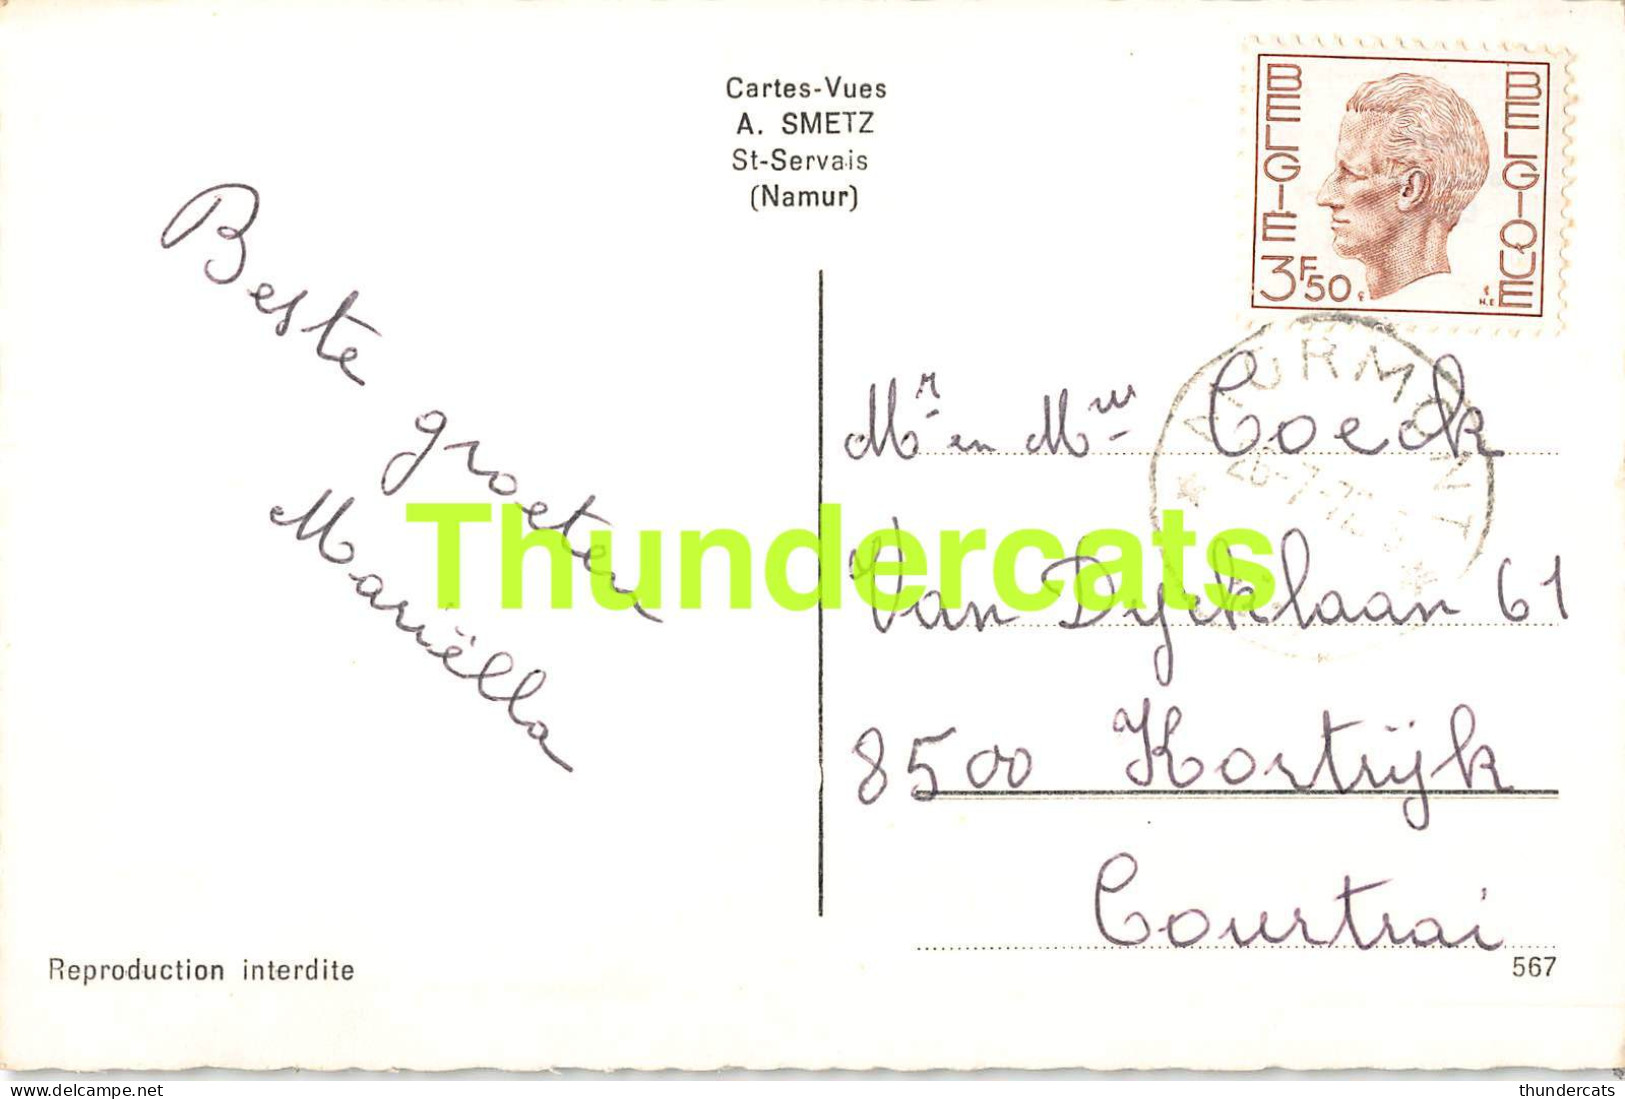 Cartes-Vues
A. SMETZ
St-Servais
(Namur)
BELGIE
BELGIQUE
3F50
Beste groeten
Mariëlla
Mr en Mw Coeck
Van Dycklaan 61
8500 Kortrijk
Courtrai
Thundercats
Reproduction interdite
567
thundercats
https://www.delcampe.net